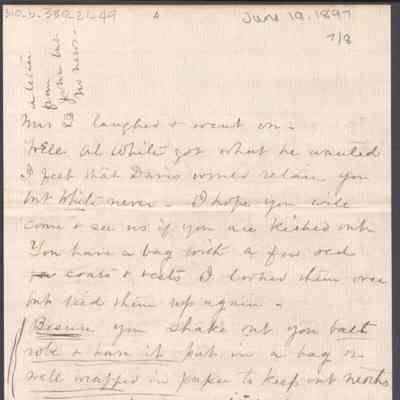 310.b.-SSQ.21.49
June 19, 1897
7/8
a letter
from
John but
no news -
Mrs D laughed & went on -
Well Al White got what he wanted
I feel that Davis would retain you
but White never - I hope you will
come & see us if you are kicked out
You have a bag with a few old
coats & vests I looked them over
but tied them up again -
Besure you shake out you
robe & have it put in a bag or
well wrapped in paper to keep out moths